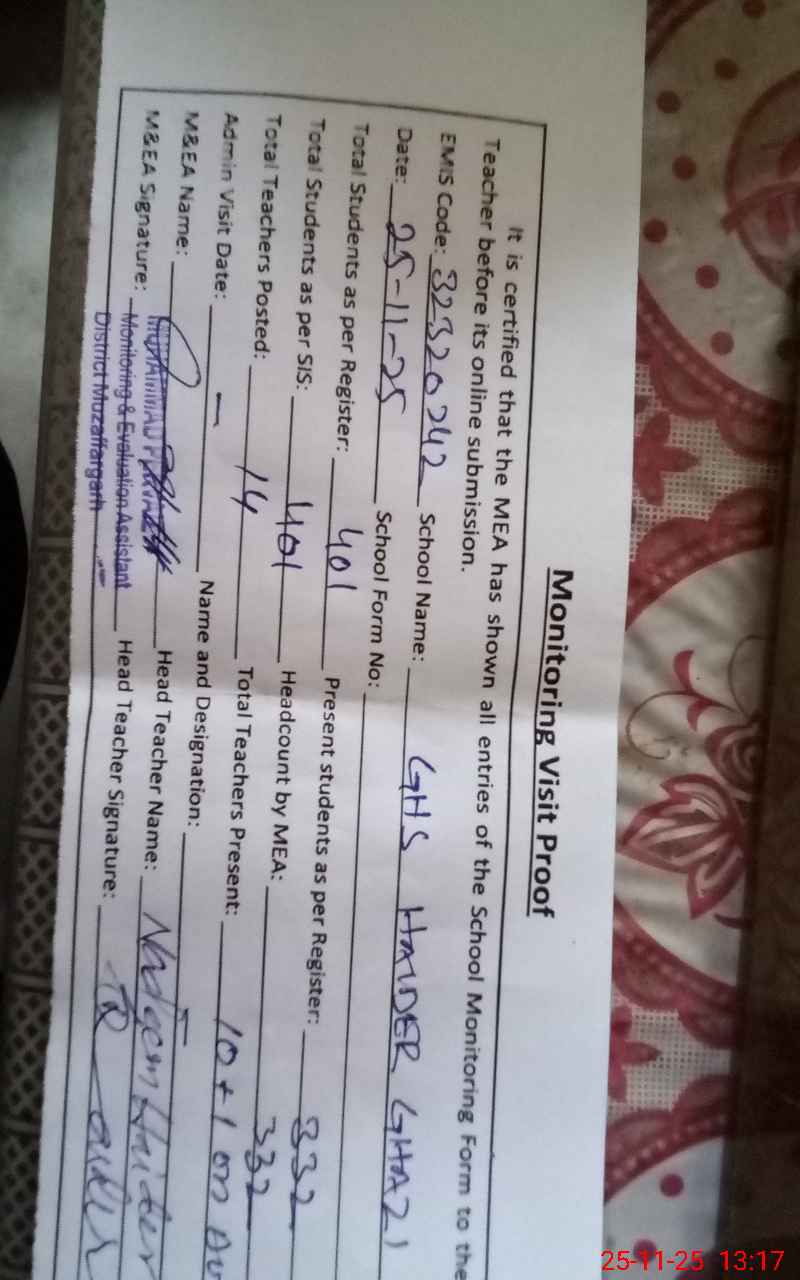 Monitoring Visit Proof
It is certified that the MEA has shown all entries of the School Monitoring Form to the
Teacher before its online submission.
EMIS Code: 32320242 School Name: GHS HAIDER GHAZI
Date: 25-11-25 School Form No:
Total Students as per Register: 401 Present students as per Register: 332
Total Students as per SIS: 401 Headcount by MEA: 332
Total Teachers Posted: 14 Total Teachers Present: 10+1 on
Admin Visit Date: — Name and Designation: —
M&EA Name: MUHAMMAD Head Teacher Name: Nadeem Haider
M&EA Signature: Monitoring & Evaluation Assistant Head Teacher Signature:
District Muzaffargarh
25-11-25 13:17